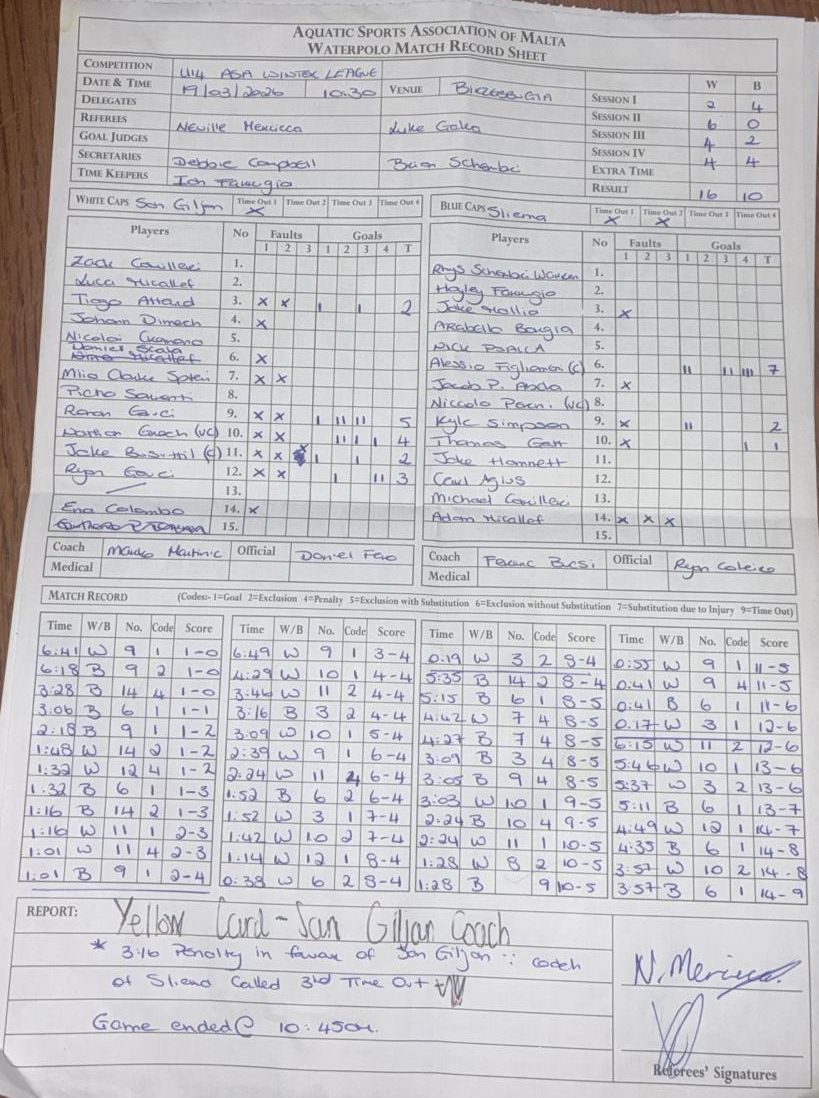 AQUATIC SPORTS ASSOCIATION OF MALTA
WATERPOLO MATCH RECORD SHEET
COMPETITION U14 ASA WINTER LEAGUE W B
DATE & TIME 19/03/2026 10:30 VENUE BIRZEBBUGIA SESSION I 2 4
DELEGATES SESSION II 6 0
REFEREES Neville Mercieca Luke SESSION III 4 2
GOAL JUDGES SESSION IV 4 4
SECRETARIES Debbie Campbell Brian Schembri EXTRA TIME
TIME KEEPERS Ian Farrugia RESULT 16 10
WHITE CAPS San Giljan Time Out 1 X Time Out 2 Time Out 3 Time Out 4
Players No Faults Goals
1 2 3 1 2 3 4 T
Zack 1.
Luca Micallef 2.
Tiago Attard 3. x x I I 2
Johann Dimech 4. x
Nicolai 5.
Daniel Scala 6. x
Mila Clarke 7. x x
8.
9. x x I II II 5
(VC) 10. x x II I I 4
Jake Busuttil (C) 11. x x I I 2
Ryan 12. x x I II 3
13.
Ena Colombo 14. x
15.
Coach Marko Martinic Official Daniel
Medical
BLUE CAPS Sliema Time Out 1 X Time Out 2 X Time Out 3 Time Out 4
Players No Faults Goals
1 2 3 1 2 3 4 T
Rhys Schembri 1.
Hayley Farrugia 2.
Jake 3. x
Arabella 4.
NICK PSAILA 5.
Alessio (C) 6. II II III 7
Jacob P. 7. x
Niccolo (VC) 8.
Kyle Simpson 9. x II 2
Thomas Gatt 10. x I 1
Jake Hamnett 11.
Carl Agius 12.
Michael 13.
Adam Micallef 14. x x x
15.
Coach Ferenc Official Ryan Coleiro
Medical
MATCH RECORD (Codes:- 1=Goal 2=Exclusion 4=Penalty 5=Exclusion with Substitution 6=Exclusion without Substitution 7=Substitution due to Injury 9=Time Out)
Time W/B No. Code Score
6:41 W 9 1 1-0
6:18 B 9 2 1-0
3:28 B 14 4 1-0
3:06 B 6 1 1-1
2:18 B 9 1 1-2
1:48 W 14 2 1-2
1:32 W 12 4 1-2
1:32 B 6 1 1-3
1:16 B 14 2 1-3
1:16 W 11 1 2-3
1:01 W 11 4 2-3
1:01 B 9 1 2-4
Time W/B No. Code Score
6:49 W 9 1 3-4
4:29 W 10 1 4-4
3:46 W 11 2 4-4
3:16 B 3 2 4-4
3:09 W 10 1 5-4
2:39 W 9 1 6-4
2:24 W 11 4 6-4
1:52 B 6 2 6-4
1:52 W 3 1 7-4
1:42 W 10 2 7-4
1:14 W 12 1 8-4
0:38 W 6 2 8-4
Time W/B No. Code Score
0:19 W 3 2 8-4
5:35 B 14 2 8-4
5:15 B 6 1 8-5
4:42 W 7 4 8-5
4:27 B 7 4 8-5
3:09 B 3 4 8-5
3:05 B 9 4 8-5
3:03 W 10 1 9-5
2:24 B 10 4 9-5
2:24 W 11 1 10-5
1:28 W 8 2 10-5
1:28 B 9 10-5
Time W/B No. Code Score
0:55 W 9 1 11-5
0:41 W 9 4 11-5
0:41 B 6 1 11-6
0:17 W 3 1 12-6
6:15 W 11 2 12-6
5:46 W 10 1 13-6
5:37 W 3 2 13-6
5:11 B 6 1 13-7
4:49 W 12 1 14-7
4:35 B 6 1 14-8
3:57 W 10 2 14-8
3:57 B 6 1 14-9
REPORT: Yellow Card - San Giljan Coach
* 3:46 Penalty in favour of San Giljan ∵ coach
of Sliema Called 3rd Time Out
Game ended @ 10:45am.
N. Mercieca
Referees' Signatures